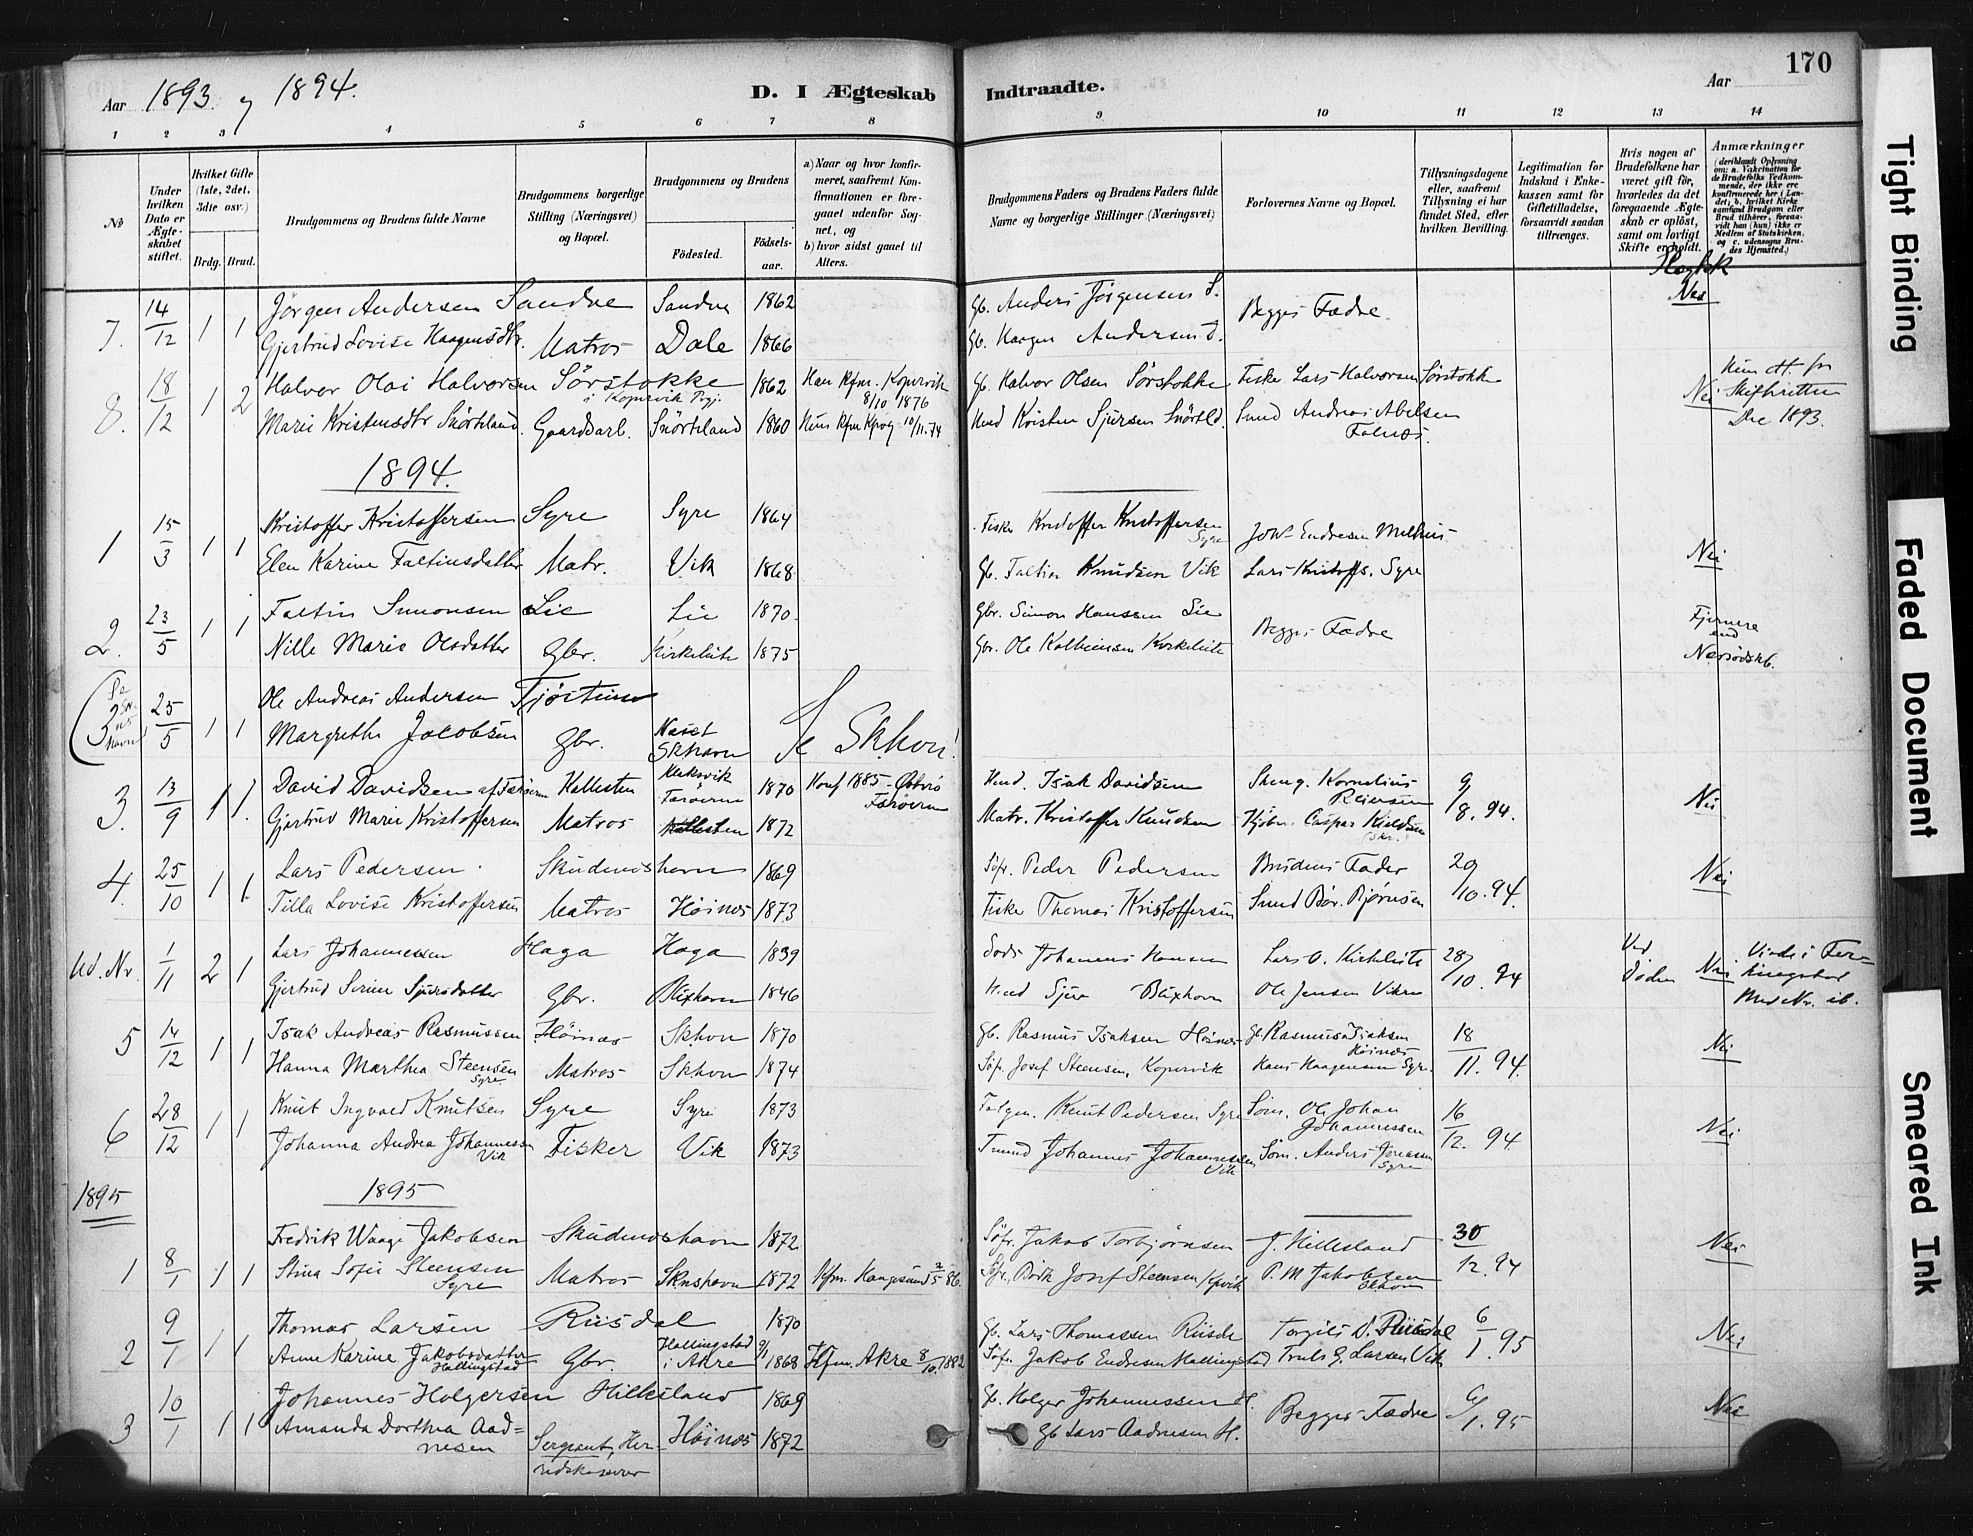 Aar 1893 og 1894.
D. I Ægteskab Indtraadte.
Aar
170
1 2 3 4 5 6 7 8 9 10 11 12 13 14
No
Under hvilken Dato er Ægteskabet stiftet.
Hvilket Gifte (1ste, 2det, 3die osv.)
Brdg. Brud.
Brudgommens og Brudens fulde Navne
Brudgommens borgerlige Stilling (Næringsvei) og Bopæl.
Brudgommens og Brudens
Fødested.
Fødselsaar.
a) Naar og hvor konfirmeret, saafremt Konfirmationen er foregaaet udenfor Sognet, og
b) hvor sidst gaaet til Alters.
Brudgommens Faders og Brudens Faders fulde Navne og borgerlige Stillinger (Næringsvei)
Forlovernes Navne og Bopæl.
Tillysningsdagene eller, saafremt Tillysning ei har fundet Sted, efter hvilken Bevilling.
Legitimation for Indskud i Enkekassen samt for Giftetilladelse, forsaavidt saadan tiltrænges.
Hvis nogen af Brudefolkene har været gift før, hvorledes da det foregaaende Ægteskab er opløst, samt om lovligt Skifte er holdt.
Anmærkninger
(deriblandt Oplysning om: a. Vakcination for de Brudefolks Vedkommende, der ikke ere konfirmerede her i Landet; b. hvilket Kirkesamfund Brudgom eller Brud tilhører, forsaavidt han (hun) ikke er Medlem af Statskirken, og c. udensogns Brudes Hjemsted.)
7. 14/12 1 1 Jörgen Andersen Sandve Sandve 1862 Gb. Anders Jörgensen S. Begges Fædre. Nei
Gjertrud Lovise Haagensdtr. Matros Dale 1866 Gb. Haagen Andersen D.
8. 18/12 1 2 Halvor Olai Halvorsen Sörstokke i Kopervik 1862 Han Kfm. Kopervik 8/10 1876 Gb. Halvor Olsen Sörstokke Fisker Lars Halvorsen Sörstokke Nei
Marie Kristensdtr Snörteland Gaardbarb. Snörteland 1860 10/11.74 Kristen Sjursen Andreas Abelsen Falnæs. 1893.
1894.
1 15/3 1 1 Kristoffer Kristoffersen Syre Syre 1864 Fisker Kristoffer Kristoffersen Syre Endresen Melhus Nei
Elen Karine Faltinsdatter Matr. Vik 1868 Gb. Faltin Knudsen Vik Lars Kristoffs. Syre
2. 23/5 1 1 Faltin Simonsen Lie Lie 1870 Gbr. Simon Hanssen Lie Begges Fædre Fjernere end
Nille Marie Olsdatter Gbr. Kirkeleite 1875 Gbr. Ole Kirkeleite
(Se 3 25/5 1 1 Ole Andreas Andersen
Margrethe Jacobsen Gbr. Skhavn Se Skhvn!
3. 13/9 1 1 David Davidsen Hellesten Færöerne 1870 Konf 1885 Færöerne Isak Davidsen Kornelius Reiersen 9/8. 94. Nei
Gjertrud Marie Kristoffersen Matros 1872 Matr. Kristoffer Knudsen Caspar
4. 25/10 1 1 Lars Pedersen Skudeneshavn 1869 Söfr. Peder Pedersen Brudens Fader 20/10. 94. Nei
Tilla Lovise Kristoffersen Matros Höinæs 1873 Fisker Thomas Kristoffersen Bjørnsen
Ud. Nr. 1/11 2 1 Lars Johannessen Haga Haga 1839 Johannes Hansen Lars O. Kirkeleite 28/10. 94 Ved Döden Nei Viede i Ferkingstad
Gjertrud Serine Sjursdatter Gbr. Blixhavn 1846 Sjur Blixhavn Ole Jensen
5 14/12 1 1 Isak Andreas Rasmussen Höinæs Skhvn 1870 Gb. Rasmus Isaksen Höinæs Rasmus Isaksen Höinæs 18/11. 94. Nei
Hanna Marthea Steensen Syre Matros Skhvn 1874 Söfr. Josef Steensen, Kopervik Hans Haagensen Syre
6 28/12 1 1 Knut Ingvald Knutsen Syre Syre 1873 Knut Pedersen Syre Söm. Ole Johan Johannessen 16/12. 94. Nei
Johanna Andrea Johannessen Vik Fisker Vik 1873 Johannes Johannessen Vik Söm. Anders Jonassen Syre
1895 1895
1 8/1 1 1 Fredrik Waage Jakobsen Skudeneshavn 1872 Söfr. Jakob Torbjörnsen J. Hillesland 30/12. 94 Nei
Stina Sofie Steensen Syre Matros Sknshavn 1872 Kfm. Haugesund 86. Josef Steensen P. M. Jakobsen
2 9/1 1 1 Thomas Larsen Riisdal 1870 Gb. Lars Thomassen Torgils D. Riisdal 6/1. 95 Nei
Anne Karine Jakobsdatter Hallingstad Gbr. Hallingstad i Akre 1868 Kfm. Akre 8/10. 1882 Söfr. Jakob Endresen Hallingstad Truls G. Larsen Vik
3 10/1 1 1 Johannes Holgersen Hillesland 1869 Gb. Holger Johannessen H. Begges Fædre 6/1. 95 Nei
Amanda Dorthea Aadnesen Sergeant, Herredskasserer Höinæs 1872 Gb Lars Aadnesen H.
Tight Binding
Faded Document
Smeared Ink